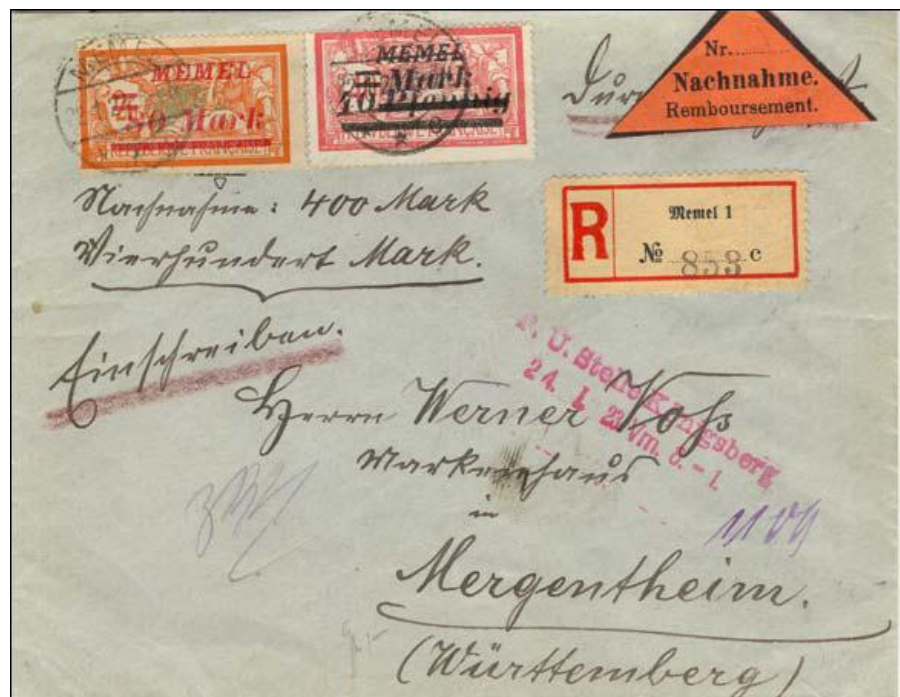 MEMEL
50 Mark
REPUBLIQUE FRANÇAISE
MEMEL
Mark
40 Pfennig
MEMEL
Nr.
Nachnahme.
Remboursement.
Nachnahme: 400 Mark
Vierhundert Mark.
R
Memel 1
№ 853 c
Einschreiben.
P. Ü. Stelle Königsberg
24. 1. 23 Vm.
Herrn Werner Voss
Markenhaus
in
Mergentheim.
(Württemberg)